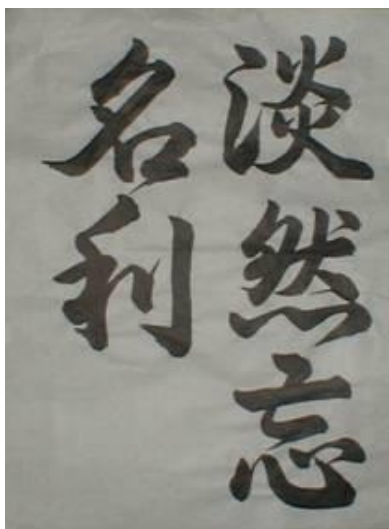 淡然忘
名利